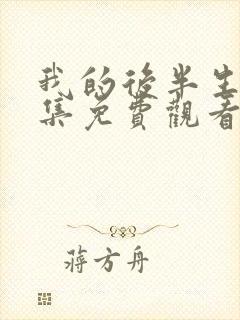 我的後半生
集免費觀看
蔣方舟